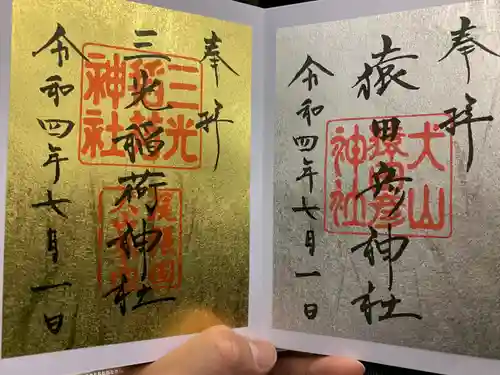 奉拝
犬山
猿田彦
神社
猿田彦神社
令和四年七月一日
奉拝
三光
稲荷
神社
三光稲荷神社
令和四年七月一日